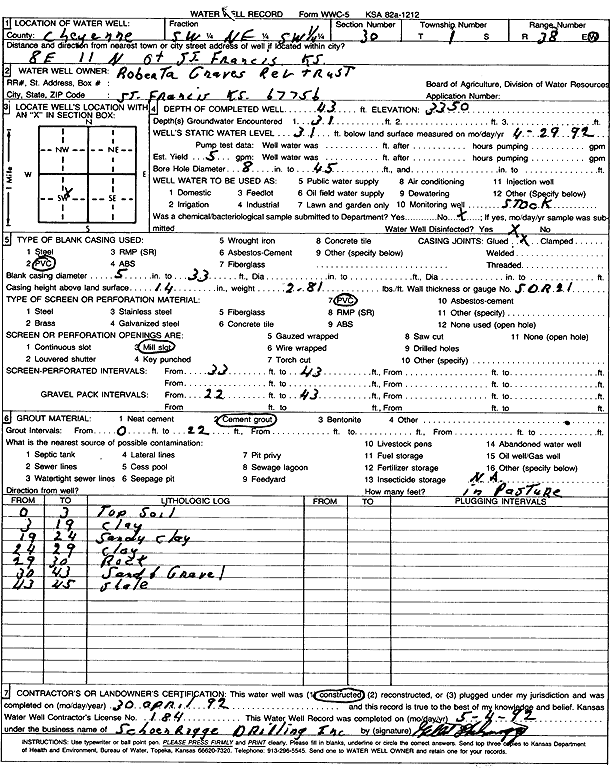 WATER WELL RECORD Form WWC-5 KSA 82a-1212
1 LOCATION OF WATER WELL: Fraction Section Number Township Number Range Number
County: Cheyenne SW ¼ NE ¼ SW ¼ 30 T 1 S R 38 E W
Distance and direction from nearest town or city street address of well if located within city?
8E 11 N of St. Francis KS.
2 WATER WELL OWNER: Roberta Graves Rev trust
RR#, St. Address, Box # : Board of Agriculture, Division of Water Resources
City, State, ZIP Code : St. Francis KS. 67756 Application Number:
3 LOCATE WELL'S LOCATION WITH AN "X" IN SECTION BOX:
N
NW NE
W E
SW SE
X
S
1 Mile
4 DEPTH OF COMPLETED WELL 43 ft. ELEVATION: 3350
Depth(s) Groundwater Encountered 1. 31 ft. 2. ft. 3. ft.
WELL'S STATIC WATER LEVEL 31 ft. below land surface measured on mo/day/yr 4-29-92
Pump test data: Well water was ft. after hours pumping gpm
Est. Yield 5 gpm: Well water was ft. after hours pumping gpm
Bore Hole Diameter 8 in. to 45 ft., and in. to ft.
WELL WATER TO BE USED AS: 5 Public water supply 8 Air conditioning 11 Injection well
1 Domestic 3 Feedlot 6 Oil field water supply 9 Dewatering 12 Other (Specify below)
2 Irrigation 4 Industrial 7 Lawn and garden only 10 Monitoring well STOCK
Was a chemical/bacteriological sample submitted to Department? Yes No X ; If yes, mo/day/yr sample was submitted
Water Well Disinfected? Yes X No
5 TYPE OF BLANK CASING USED: 5 Wrought iron 8 Concrete tile CASING JOINTS: Glued X Clamped
1 Steel 3 RMP (SR) 6 Asbestos-Cement 9 Other (specify below) Welded
2 PVC 4 ABS 7 Fiberglass Threaded
Blank casing diameter 5 in. to 33 ft., Dia in. to ft., Dia in. to ft.
Casing height above land surface 14 in., weight 2.81 lbs./ft. Wall thickness or gauge No. SDR21
TYPE OF SCREEN OR PERFORATION MATERIAL: 7 PVC 10 Asbestos-cement
1 Steel 3 Stainless steel 5 Fiberglass 8 RMP (SR) 11 Other (specify)
2 Brass 4 Galvanized steel 6 Concrete tile 9 ABS 12 None used (open hole)
SCREEN OR PERFORATION OPENINGS ARE: 5 Gauzed wrapped 8 Saw cut 11 None (open hole)
1 Continuous slot 3 Mill slot 6 Wire wrapped 9 Drilled holes
2 Louvered shutter 4 Key punched 7 Torch cut 10 Other (specify)
SCREEN-PERFORATED INTERVALS: From 33 ft. to 43 ft., From ft. to ft.
From ft. to ft., From ft. to ft.
GRAVEL PACK INTERVALS: From 22 ft. to 43 ft., From ft. to ft.
From ft. to ft., From ft. to ft.
6 GROUT MATERIAL: 1 Neat cement 2 Cement grout 3 Bentonite 4 Other
Grout Intervals: From 0 ft. to 22 ft., From ft. to ft., From ft. to ft.
What is the nearest source of possible contamination: 10 Livestock pens 14 Abandoned water well
1 Septic tank 4 Lateral lines 7 Pit privy 11 Fuel storage 15 Oil well/Gas well
2 Sewer lines 5 Cess pool 8 Sewage lagoon 12 Fertilizer storage 16 Other (specify below)
3 Watertight sewer lines 6 Seepage pit 9 Feedyard 13 Insecticide storage N.A.
Direction from well? How many feet? in Pasture
FROM TO LITHOLOGIC LOG FROM TO PLUGGING INTERVALS
0 3 Top Soil
3 19 clay
19 24 Sandy clay
24 29 clay
29 30 Rock
30 43 Sand & Gravel
43 45 shale
7 CONTRACTOR'S OR LANDOWNER'S CERTIFICATION: This water well was (1) constructed, (2) reconstructed, or (3) plugged under my jurisdiction and was
completed on (mo/day/year) 30 april 92 and this record is true to the best of my knowledge and belief. Kansas
Water Well Contractor's License No. 184 This Water Well Record was completed on (mo/day/yr) 5-4-92
under the business name of Schoenrogge Drilling Inc by (signature)
INSTRUCTIONS: Use typewriter or ball point pen. PLEASE PRESS FIRMLY and PRINT clearly. Please fill in blanks, underline or circle the correct answers. Send top three copies to Kansas Department
of Health and Environment, Bureau of Water, Topeka, Kansas 66620-7320. Telephone: 913-296-5545. Send one to WATER WELL OWNER and retain one for your records.